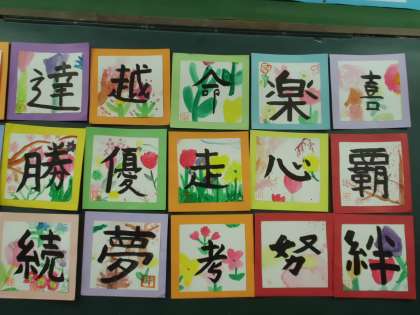 達 越 命 楽 喜
勝 優 走 心 覇
続 夢 考 努 絆